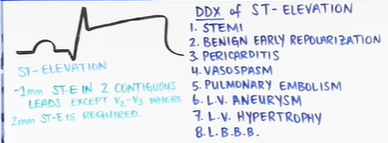 ST-ELEVATION
-1mm ST-E IN 2 CONTIGUOUS
LEADS EXCEPT V2-V3 WHERE
2mm ST-E IS REQUIRED.
DDX of ST-ELEVATION
1. STEMI
2. BENIGN EARLY REPOLARIZATION
3. PERICARDITIS
4. VASOSPASM
5. PULMONARY EMBOLISM
6. L.V. ANEURYSM
7. L.V. HYPERTROPHY
8. L.B.B.B.